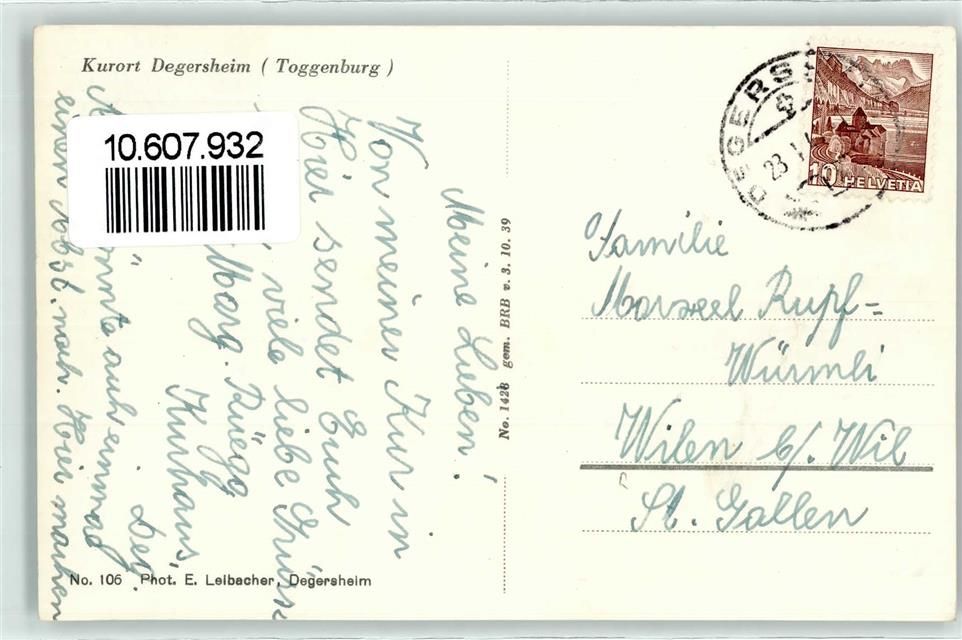 Kurort Degersheim ( Toggenburg )
10.607.932
Meine Lieben!
Von meiner Kur in
Hier sendet Euch
viele liebe Grüsse
Marg. Rüegg
Kurhaus,
Der.
könnte auch einmal
einen Obst. nach. Hier machen
No. 1428 gem. BRB v. 3. 10. 39
DEGERSHEIM
23
10 HELVETIA
Familie
Marzell Rupf=
Würmli
Wilen b/. Wil
St. Gallen
No. 106 Phot. E. Leibacher, Degersheim